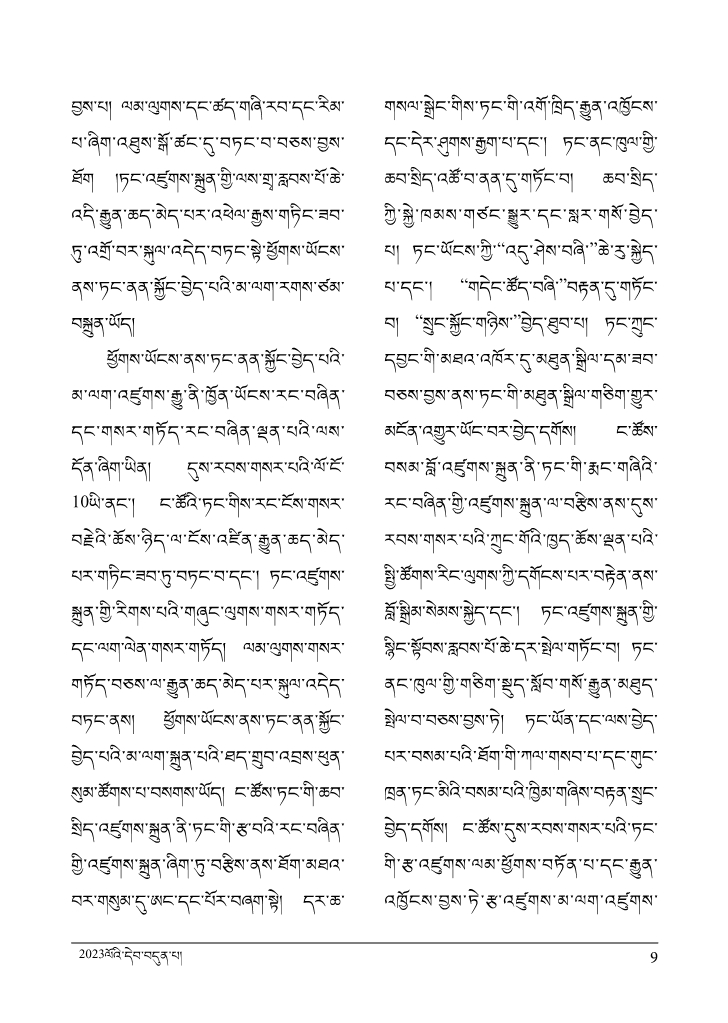 བྱས་པ། ལམ་ལུགས་དང་ཚད་གཞི་རབ་དང་རིམ་
པ་ཞིག་འཐུས་སྒོ་ཚང་དུ་བཏང་བ་བཅས་བྱས་
ཐོག །ཏང་འཛུགས་སྐྲུན་གྱི་ལས་གྲྭ་རླབས་པོ་ཆེ་
འདི་རྒྱུན་ཆད་མེད་པར་འཕེལ་རྒྱས་གཏིང་ཟབ་
ཏུ་འགྲོ་བར་སྐུལ་འདེད་བཏང་སྟེ་ཕྱོགས་ཡོངས་
ནས་ཏང་ནན་སྐྱོང་བྱེད་པའི་མ་ལག་རགས་ཙམ་
བསྐྲུན་ཡོད།
ཕྱོགས་ཡོངས་ནས་ཏང་ནན་སྐྱོང་བྱེད་པའི་
མ་ལག་འཛུགས་རྒྱུ་ནི་ཁྱོན་ཡོངས་རང་བཞིན་
དང་གསར་གཏོད་རང་བཞིན་ལྡན་པའི་ལས་
དོན་ཞིག་ཡིན། དུས་རབས་གསར་པའི་ལོ་ངོ་
10ཡི་ནང་། ང་ཚོའི་ཏང་གིས་རང་ངོས་གསར་
བརྗེའི་ཆོས་ཉིད་ལ་ངོས་འཛིན་རྒྱུན་ཆད་མེད་
པར་གཏིང་ཟབ་ཏུ་བཏང་བ་དང་། ཏང་འཛུགས་
སྐྲུན་གྱི་རིགས་པའི་གཞུང་ལུགས་གསར་གཏོད་
དང་ལག་ལེན་གསར་གཏོད། ལམ་ལུགས་གསར་
གཏོད་བཅས་ལ་རྒྱུན་ཆད་མེད་པར་སྐུལ་འདེད་
བཏང་ནས། ཕྱོགས་ཡོངས་ནས་ཏང་ནན་སྐྱོང་
བྱེད་པའི་མ་ལག་སྐྲུན་པའི་ཐད་གྲུབ་འབྲས་ཕུན་
སུམ་ཚོགས་པ་བསགས་ཡོད། ང་ཚོས་ཏང་གི་ཆབ་
སྲིད་འཛུགས་སྐྲུན་ནི་ཏང་གི་རྩ་བའི་རང་བཞིན་
གྱི་འཛུགས་སྐྲུན་ཞིག་ཏུ་བརྩིས་ནས་ཐོག་མཐའ་
བར་གསུམ་དུ་ཨང་དང་པོར་བཞག་སྟེ། དར་ཆ་
གསལ་སྒྲེང་གིས་ཏང་གི་འགོ་ཁྲིད་རྒྱུན་འཁྱོངས་
དང་དེར་ཤུགས་རྒྱག་པ་དང་། ཏང་ནང་ཁུལ་གྱི་
ཆབ་སྲིད་འཚོ་བ་ནན་དུ་གཏོང་བ། ཆབ་སྲིད་
ཀྱི་སྐྱེ་ཁམས་གཙང་སྒྱུར་དང་སླར་གསོ་བྱེད་
པ། ཏང་ཡོངས་ཀྱི་“འདུ་ཤེས་བཞི་”ཆེ་རུ་སྐྱེད་
པ་དང་། “གདེང་ཚོད་བཞི་”བརྟན་དུ་གཏོང་
བ། “སྲུང་སྐྱོང་གཉིས་”བྱེད་ཐུབ་པ། ཏང་ཀྲུང་
དབྱང་གི་མཐའ་འཁོར་དུ་མཐུན་སྒྲིལ་དམ་ཟབ་
བཅས་བྱས་ནས་ཏང་གི་མཐུན་སྒྲིལ་གཅིག་གྱུར་
མངོན་འགྱུར་ཡོང་བར་བྱེད་དགོས། ང་ཚོས་
བསམ་བློ་འཛུགས་སྐྲུན་ནི་ཏང་གི་རྨང་གཞིའི་
རང་བཞིན་གྱི་འཛུགས་སྐྲུན་ལ་བརྩིས་ནས་དུས་
རབས་གསར་པའི་ཀྲུང་གོའི་ཁྱད་ཆོས་ལྡན་པའི་
སྤྱི་ཚོགས་རིང་ལུགས་ཀྱི་དགོངས་པར་བརྟེན་ནས་
བློ་སྒྲིམ་སེམས་སྐྱེད་དང་། ཏང་འཛུགས་སྐྲུན་གྱི་
སྙིང་སྟོབས་རླབས་པོ་ཆེ་དར་སྤེལ་གཏོང་བ། ཏང་
ནང་ཁུལ་གྱི་གཅིག་སྡུད་སློབ་གསོ་རྒྱུན་མཐུད་
སྤེལ་བ་བཅས་བྱས་ཏེ། ཏང་ཡོན་དང་ལས་བྱེད་
པར་བསམ་པའི་ཐོག་གི་ཀལ་གསབ་པ་དང་གུང་
ཁྲན་ཏང་མིའི་བསམ་པའི་ཁྱིམ་གཞིས་བརྟན་སྲུང་
བྱེད་དགོས། ང་ཚོས་དུས་རབས་གསར་པའི་ཏང་
གི་རྩ་འཛུགས་ལམ་ཕྱོགས་བཏོན་པ་དང་རྒྱུན་
འཁྱོངས་བྱས་ཏེ་རྩ་འཛུགས་མ་ལག་འཛུགས་
2023ལོའི་དེབ་བདུན་པ།
9